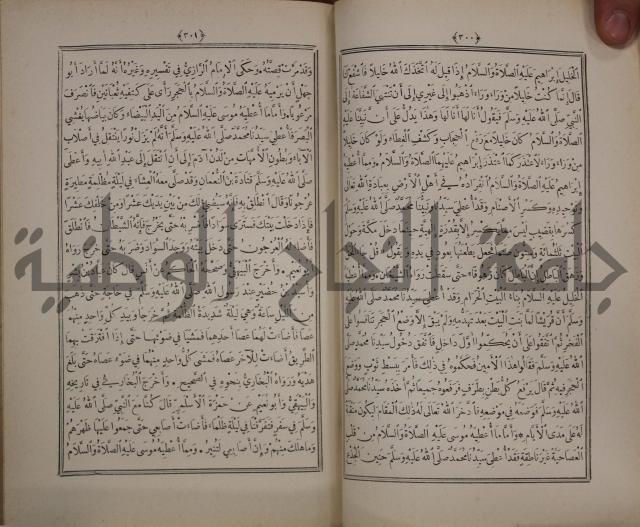 ﴿٣٠٠﴾
الخليل إبراهيم عليه الصلاة والسلام إذا قيل له اتخذك الله خليلا فاشفع لنا
قال إنما كنت خليلا من وراء وراء اذهبوا إلى غيري إلى أن تنتهي الشفاعة إلى
النبي صلى الله عليه وسلم فيقول أنا لها أنا لها وهذا يدل على أن نبينا عليه
الصلاة والسلام كان خليلا مع رفع الحجاب وكشف الغطاء ولو كان خليلا
من وراء وراء لاعتذر كما اعتذر إبراهيم عليهما الصلاة والسلام ومما أعطيه
إبراهيم عليه الصلاة والسلام انفراده في أهل الأرض بعبادة الله تعالى
وتوحيده وكسر الأصنام وقد أعطي سيدنا ونبينا محمد صلى الله عليه وسلم
كسرها بقضيب ليس مما يكسر إلا بقدرة إلهية حينما دخل مكة وحول
البيت ثلثمائة وستون صنما فجعل يطعنها بعود في يده ويقول قل جاء الحق
وزهق الباطل إن الباطل كان زهوقا حتى سقطت
الخليل عليه السلام بناء البيت الحرام وقد أعطي سيدنا محمد صلى الله عليه
وسلم أن قريشا لما بنت البيت بعد تهدمه ولم يبق إلا وضع الحجر تنافسوا على
الفخر ثم اتفقوا على أن يحكموا أول داخل فاتفق دخول سيدنا محمد صلى
الله عليه وسلم فقالوا هذا الأمين فحكموه في ذلك فأمر ببسط ثوب ووضع
الحجر فيه ثم قال يرفع كل بطن بطرف فرفعوه جميعا ثم أخذه سيدنا محمد صلى
الله عليه وسلم فوضعه في موضعه فادخر الله تعالى له ذلك المقام ليكون منقبة
له على مدى الأيام وأما ما أعطيه موسى عليه الصلاة والسلام من قلب
العصا حية غير ناطقة فقد أعطي سيدنا محمد صلى الله عليه وسلم حنين الجذع
﴿٣٠١﴾
وقد مرت قصته وحكى الإمام الرازي في تفسيره وغيره أنه لما أراد أبو
جهل أن يرميه عليه الصلاة والسلام بالحجر رأى على كتفيه ثعبانين فانصرف
مرعوبا وأما ما أعطيه موسى عليه السلام من اليد البيضاء وكان بياضها يغشى
البصر فأعطي سيدنا محمد صلى الله عليه وسلم أنه لم يزل نورا ينتقل في أصلاب
الآباء وبطون الأمهات من لدن آدم إلى أن انتقل إلى عبد الله أبيه وأعطى
صلى الله عليه وسلم قتادة بن النعمان وقد صلى معه العشاء في ليلة مظلمة مطيرة
عرجونا وقال انطلق به فإنه سيضيء لك من بين يديك عشرا ومن خلفك عشرا
فإذا دخلت بيتك فسترى سوادا فاضربه حتى يخرج فإنه الشيطان فانطلق
فأضاء له العرجون حتى دخل بيته ووجد السواد وضربه حتى خرج رواه
أبو نعيم وأخرج البيهقي وصححه الحاكم عن أنس قال كان عباد بن بشر
وأسيد بن حضير عند رسول الله صلى الله عليه وسلم في حاجة حتى ذهب
من الليل ساعة وهي ليلة شديدة الظلمة ثم خرجا وبيد كل واحد منهما
عصا فأضاءت لهما عصا أحدهما فمشيا في ضوئها حتى إذا افترقت بهما
الطريق أضاءت للآخر عصاه فمشى كل واحد منهما في ضوء عصاه حتى بلغ
هديه ورواه البخاري بنحوه في الصحيح وأخرج البخاري في تاريخه
والبيهقي وأبو نعيم عن حمزة الأسلمي قال كنا مع النبي صلى الله عليه
وسلم في سفر فتفرقنا في ليلة ظلماء فأضاءت أصابعي حتى جمعوا عليها ظهرهم
وما هلك منهم وإن أصابعي لتنير ومما أعطيه موسى عليه الصلاة والسلام
جامعة النجاح الوطنية